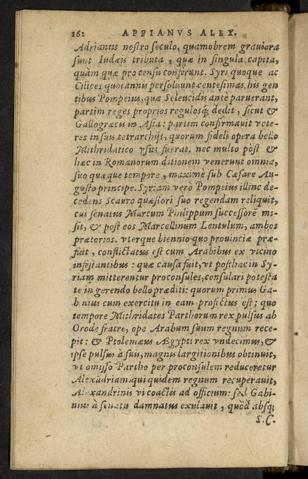 262 APPIANVS ALEX.
Adrianus nostro seculo, quamobrem grauiora
sunt Iudæis tributa, quæ in singula capita,
quàm quæ pro censu conferunt. Syri quoque ac
Cilices quotannis persoluunt centesimas. his gen
tibus Pompeius, quæ Seleucidis antè paruerant,
partim reges proprios regulosq́; dedit, sicut &
Gallogræcis in Asia: partim confirmauit vete-
res in suis tetrarchijs, quorum fideli opera bello
Mithridatico vsus fuerat. nec multo pòst &
hæc in Romanorum ditionem venerunt omnia,
suo quæque tempore, maximè sub Cæsare Au-
gusto principe. Syriam verò Pompeius illinc de-
cedens Scauro quæstori suo regendam reliquit,
cui senatus Marcum Philippum successorē mi-
sit, & post eos Marcellinum Lentulum, ambos
prætorios. vterque biennio quo prouinciæ præ-
fuit, conflictatus est cum Arabibus ex vicino
infestantibus: quæ causa fuit, vt posthac in Sy-
riam mitterentur proconsules, consulari potesta
te in gerendo bello præditi: quorum primus Ga-
binius cum exercitu in eam profectus est: quo
tempore Mithridates Parthorum rex pulsus ab
Orode fratre, ope Arabum suum regnum rece-
pit: & Ptolemæus Ægypti rex vndecimus, &
ipse pulsus à suis, magnis largitionibus obtinuit,
vt omisso Partho per proconsulem reduceretur
Alexādriam. qui quidem regnum recuperauit,
Alexandrinis vi coactis ad officium: sed Gabi-
nius à senatu damnatus exulauit, quòd absq;
S.C.